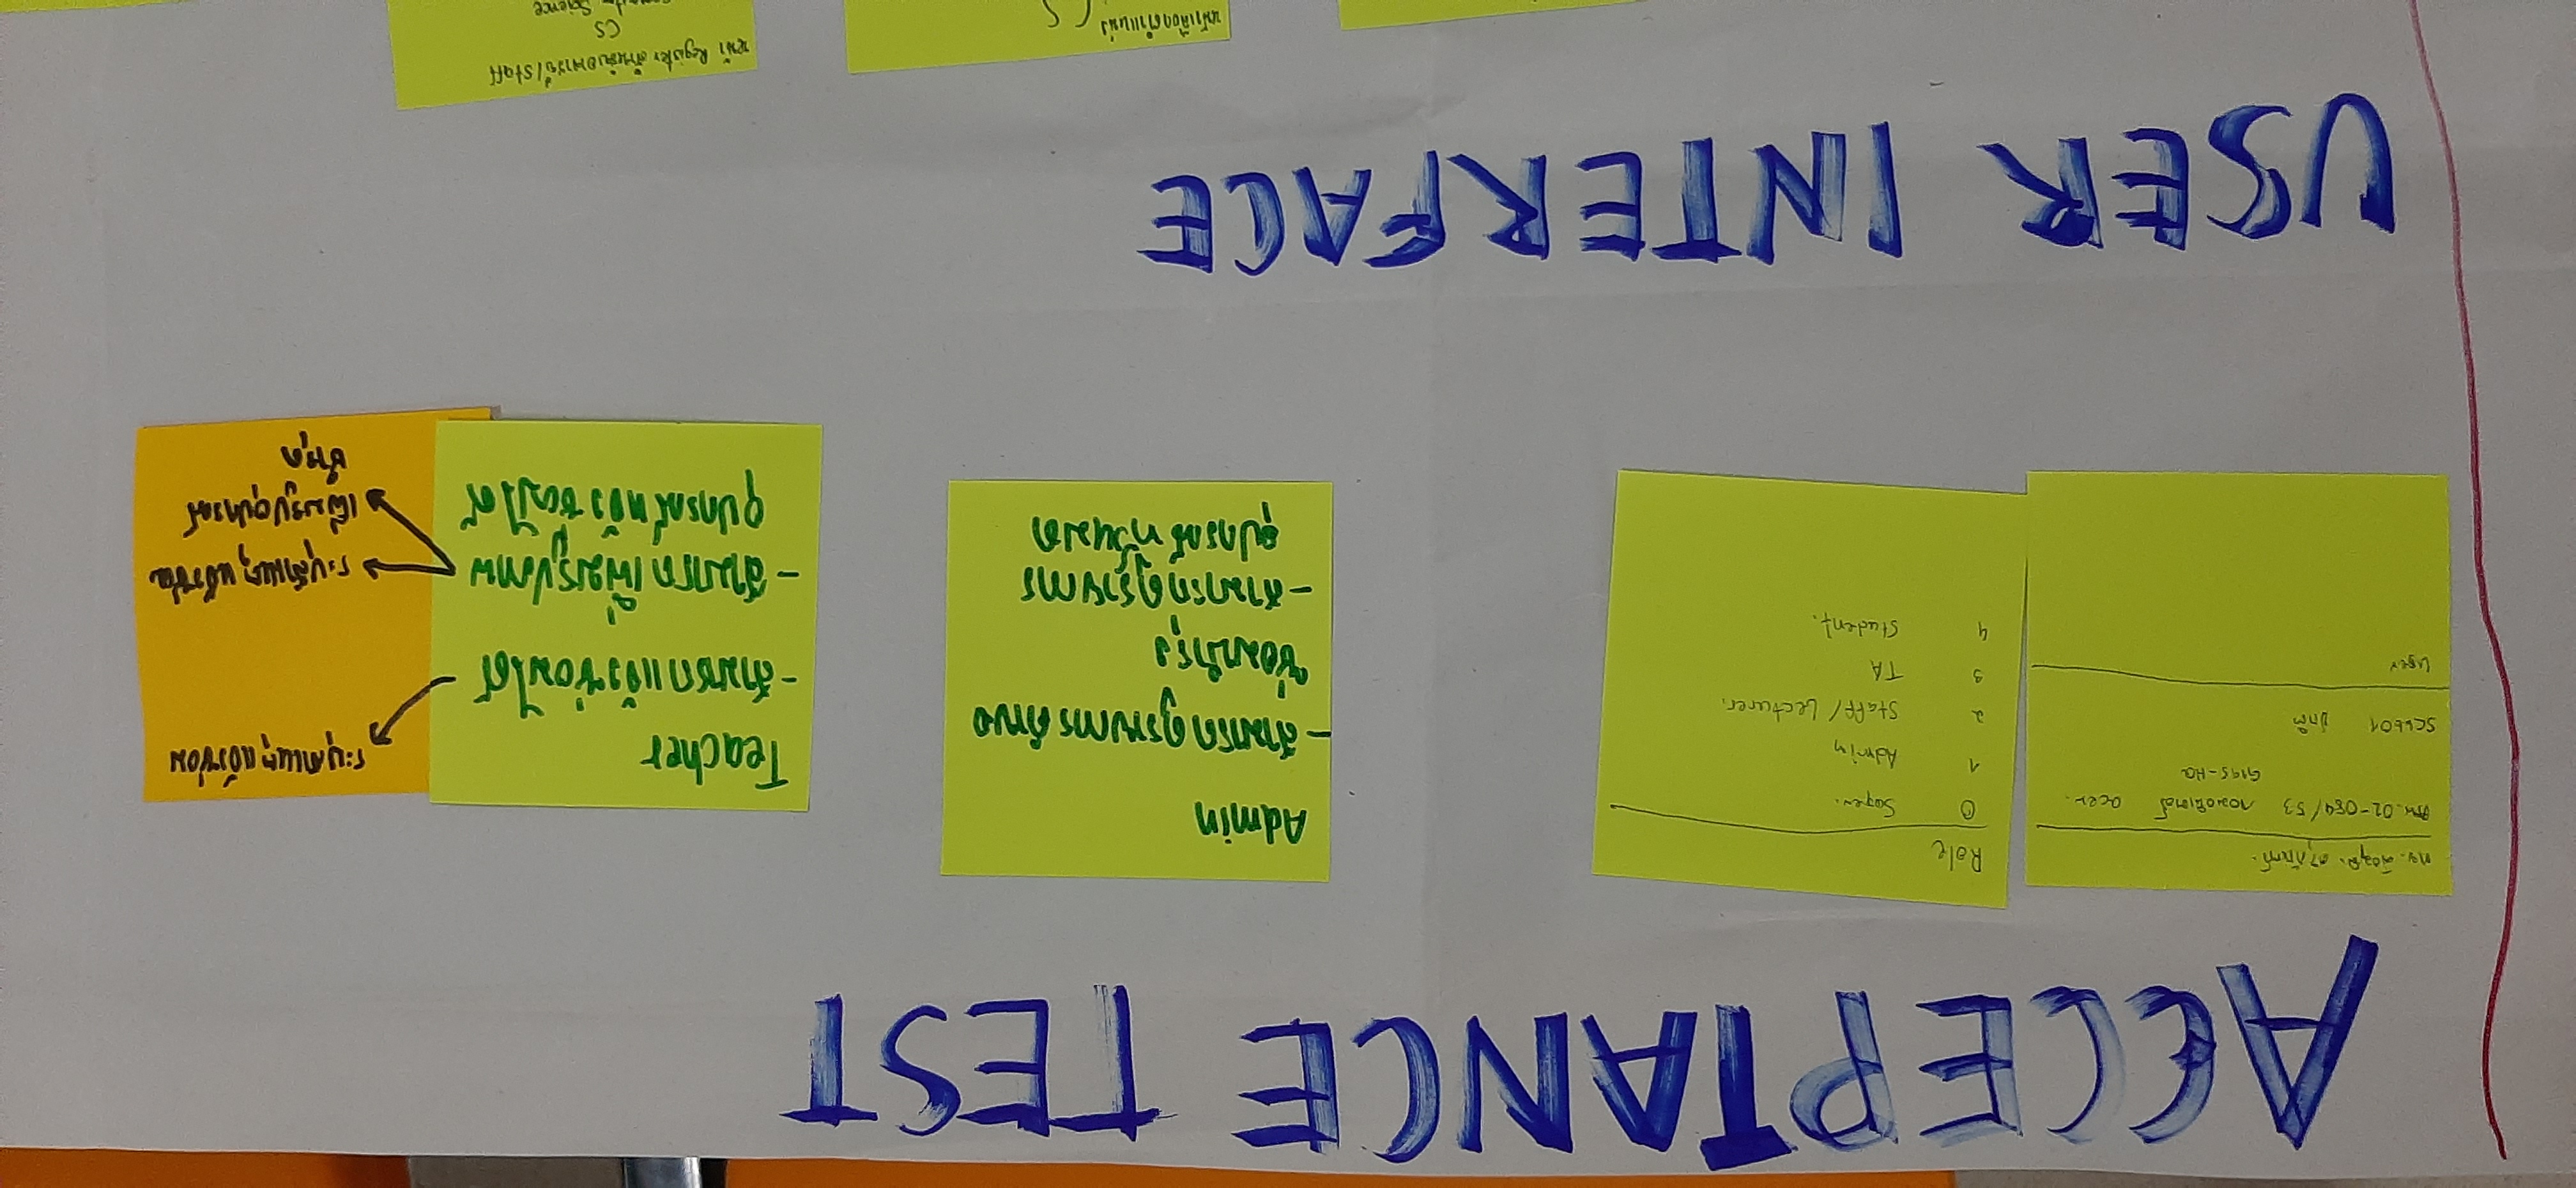 ACCEPTANCE TEST
ครุภัณฑ์
02-084/53 acer.
G195-HQ
SC6601 ปกติ
User
Role
0 Super.
1 Admin
2 Staff/ Lecturer.
3 TA
4 Student.
Admin
- สามารถดูรายการคำขอ
ซ่อมบำรุง
- สามารถดูรายการ
อุปกรณ์ทั้งหมด
Teacher
- สามารถแจ้งซ่อมได้
- สามารถเพิ่มรูปภาพ
อุปกรณ์แจ้งซ่อมได้
ระบุสาเหตุแจ้งซ่อม
ระบุสาเหตุแจ้งซ่อม
เพิ่มรูปอุปกรณ์
ชำรุด
USER INTERFACE
หน้าเลือกตำแหน่ง
CS
หน้า Register สำหรับอาจารย์/Staff
CS
Computer Science